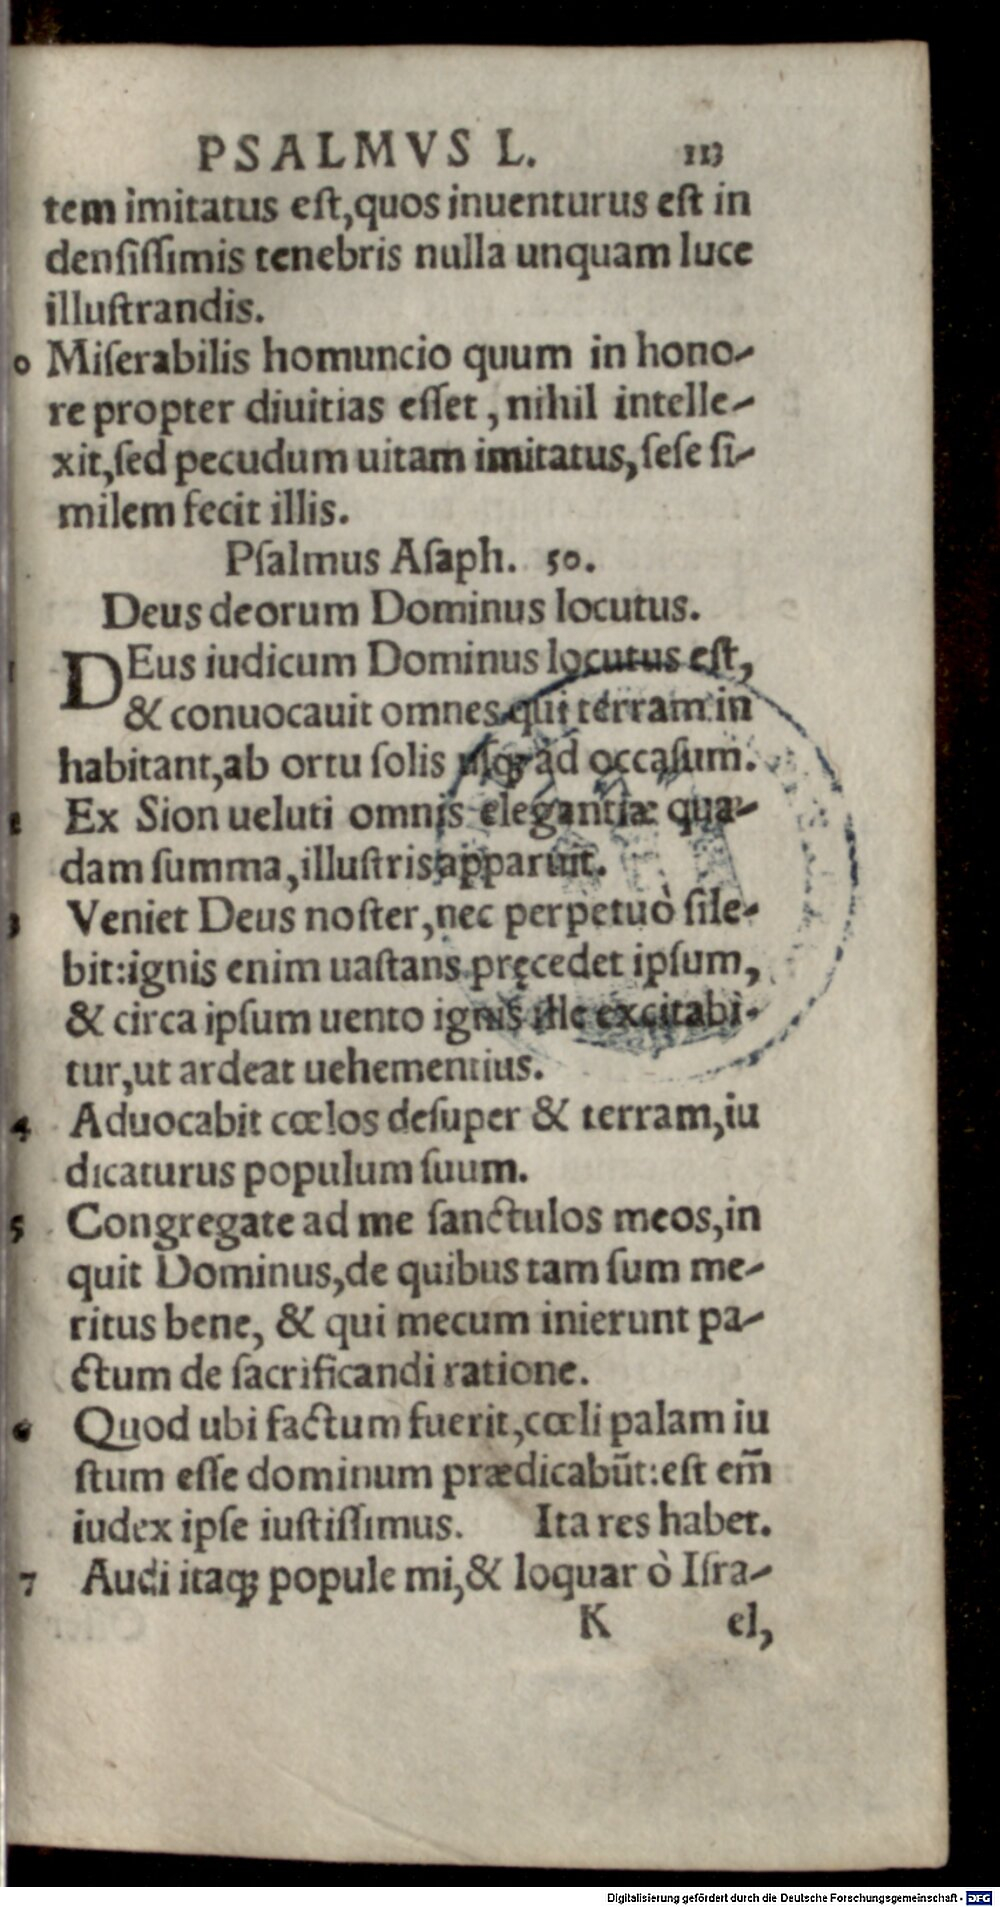 PSALMVS L. 113
tem imitatus eſt,quos inuenturus eſt in
denſiſſimis tenebris nulla unquam luce
illuſtrandis.
0 Miſerabilis homuncio quum in hono-
re propter diuitias eſſet, nihil intelle-
xit,ſed pecudum uitam imitatus,ſeſe ſi-
milem fecit illis.
Pſalmus Aſaph. 50.
Deus deorum Dominus locutus.
1 DEus iudicum Dominus locutus est,
& conuocauit omnes qui terram in
habitant,ab ortu ſolis uſqꝫ ad occaſum.
2 Ex Sion ueluti omnis elegantiæ qua-
dam ſumma,illuſtris apparuit.
3 Veniet Deus noſter,nec perpetuò ſile-
bit:ignis enim uaſtans pręcedet ipſum,
& circa ipſum uento ignis ille excitabi-
tur,ut ardeat uehementius.
4 Aduocabit cœlos deſuper & terram,iu
dicaturus populum ſuum.
5 Congregate ad me ſanctulos meos,in
quit Dominus,de quibus tam ſum me-
ritus bene, & qui mecum inierunt pa-
ctum de ſacrificandi ratione.
6 Quod ubi factum fuerit,cœli palam iu
ſtum eſſe dominum prædicabūt:eſt em̃
iudex ipſe iuſtiſſimus. Ita res habet.
7 Audi itaqꝫ popule mi,& loquar ò Iſra-
K el,
Digitalisierung gefördert durch die Deutsche Forschungsgemeinschaft - DFG